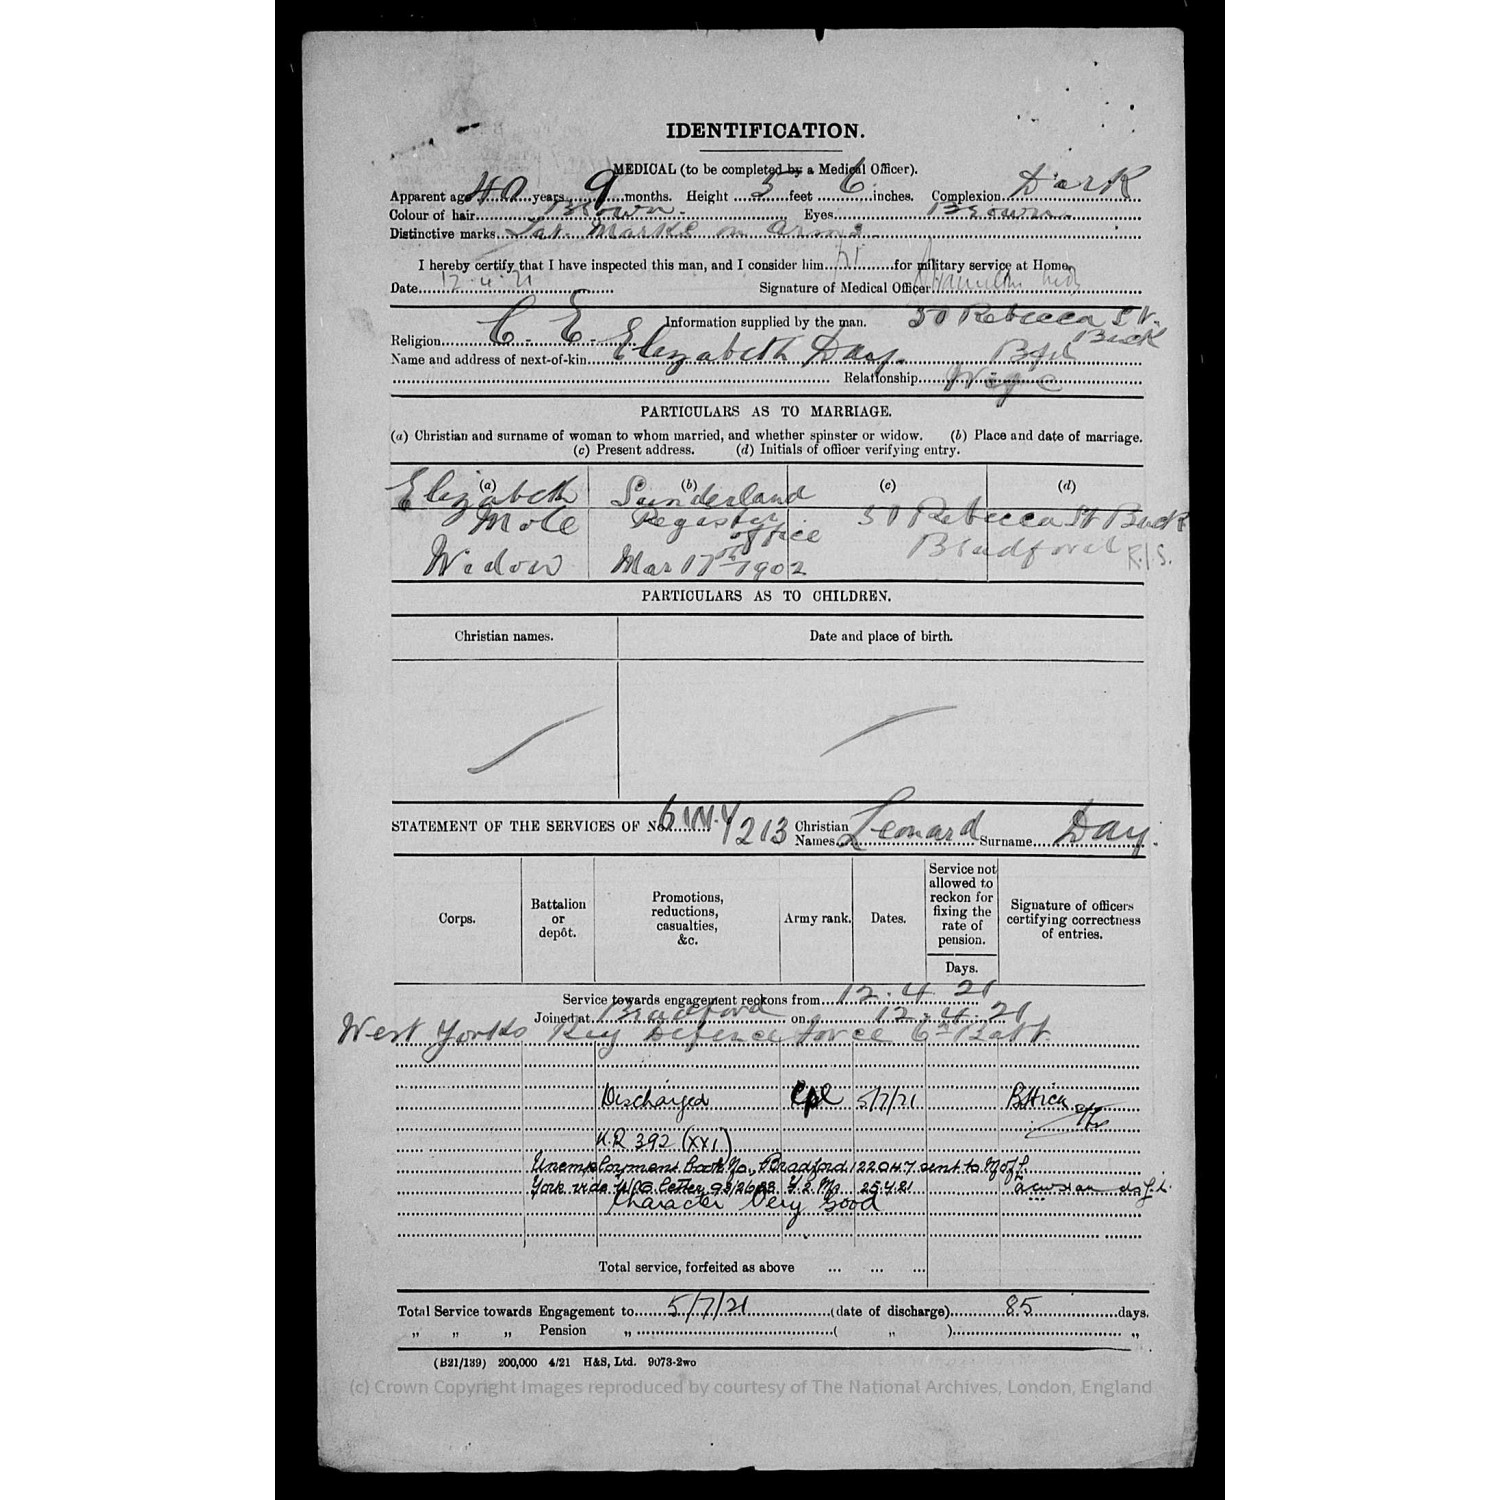 IDENTIFICATION.
MEDICAL (to be completed by a Medical Officer).
Apparent age 40 years 9 months. Height 5 feet 6 inches. Complexion Dark
Colour of hair Brown. Eyes Brown.
Distinctive marks Tat. Marks on arms.
I hereby certify that I have inspected this man, and I consider him fit for military service at Home.
Date 12.4.21 Signature of Medical Officer
Information supplied by the man. 50 Rebecca St.
Religion C. E. Back
Name and address of next-of-kin Elizabeth Day. Bfd
Relationship Wife
PARTICULARS AS TO MARRIAGE.
(a) Christian and surname of woman to whom married, and whether spinster or widow. (b) Place and date of marriage.
(c) Present address. (d) Initials of officer verifying entry.
(a) (b) (c) (d)
Elizabeth Sunderland
Mole Register 50 Rebecca St Back
office Bradford
Widow Mar 17th 1902
PARTICULARS AS TO CHILDREN.
Christian names. Date and place of birth.
STATEMENT OF THE SERVICES OF No. 6/W.Y/213 Christian Names Leonard Surname Day.
Corps. Battalion or depôt. Promotions, reductions, casualties, &c. Army rank. Dates. Service not allowed to reckon for fixing the rate of pension. Days. Signature of officers certifying correctness of entries.
Service towards engagement reckons from 12.4.21
Joined at Bradford on 12.4.21
West Yorks Reg Defence force 6th Batt.
Discharged Cpl 5/7/21
K.R 392 (XXI)
Unemployment book No. Bradford 122047 sent to M of L.
York vide letter 25.4.21
Character Very Good
Total service, forfeited as above ... ... ...
Total Service towards Engagement to 5/7/21 (date of discharge) 85 days.
„ „ „ Pension „ ( „ ) „
(B21/139) 200,000 4/21 H&S, Ltd. 9073-2wo
(c) Crown Copyright Images reproduced by courtesy of The National Archives, London, England